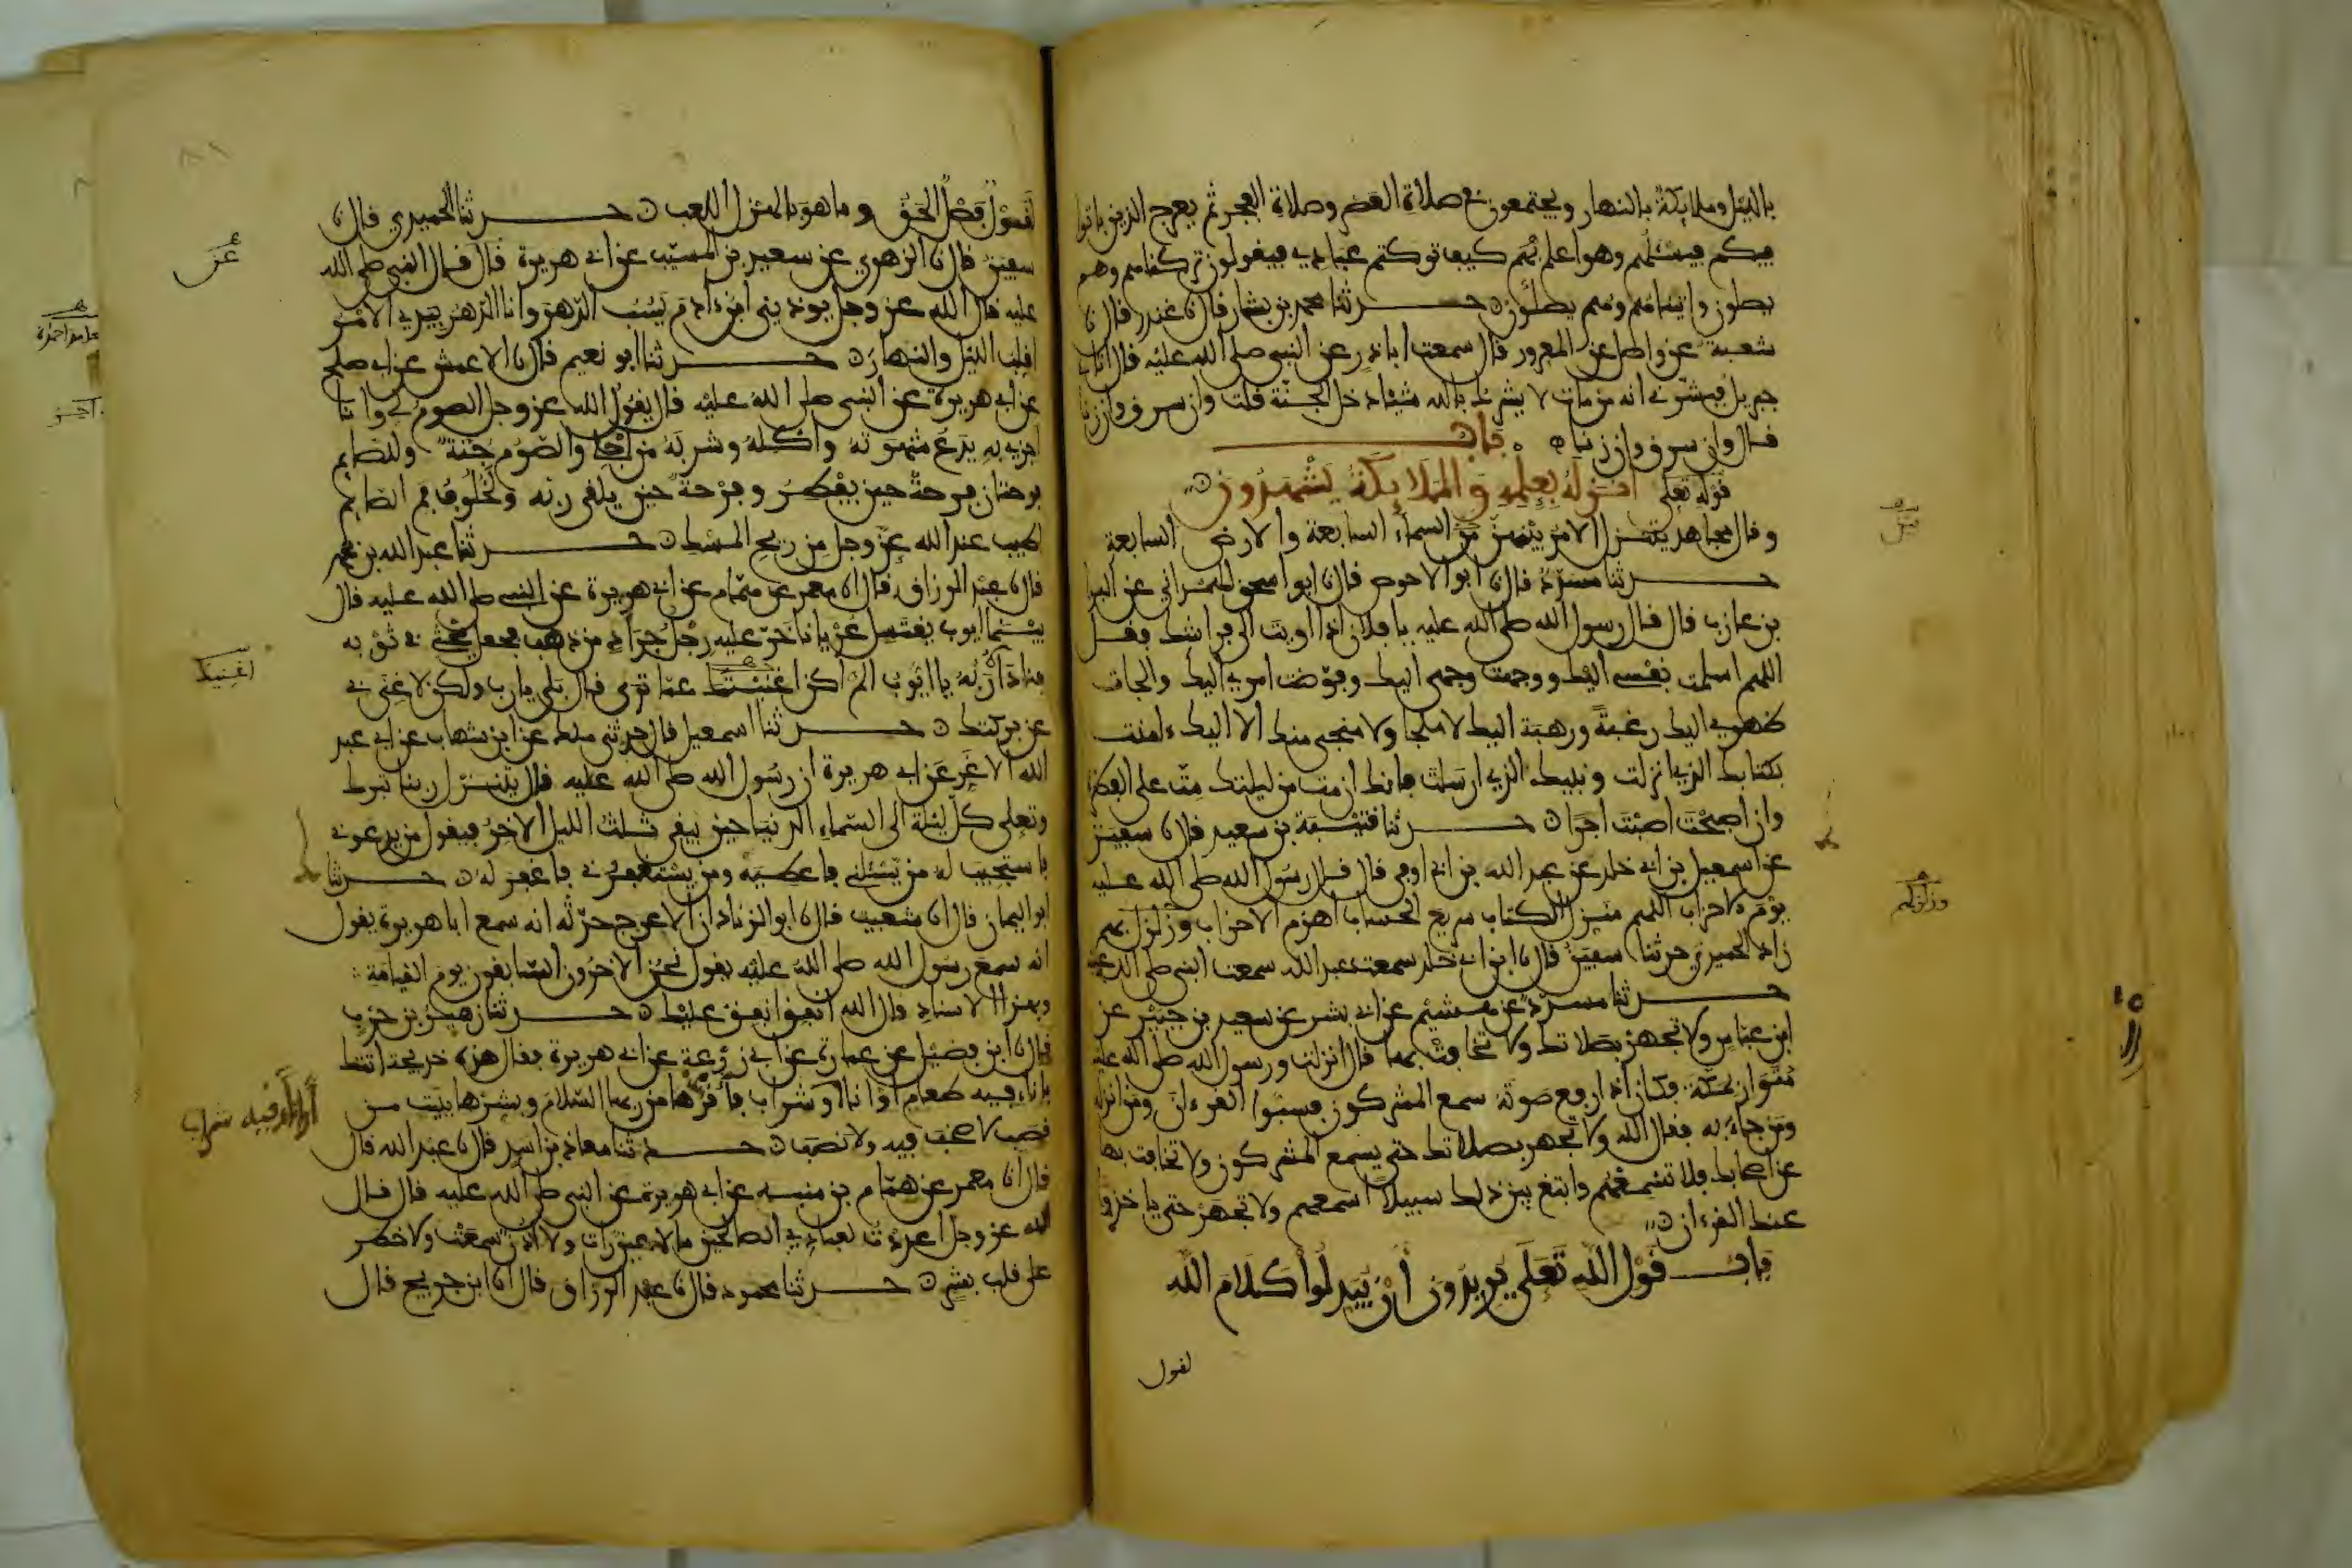 بالليل وملايكة بالنهار ويجتمعون في صلاة العصر وصلاة الفجر ثم يعرج الذين باتوا
فيكم فيسئلهم وهو اعلم بهم كيف تركتم عبادي فيقولون تركناهم وهم
يصلون واتيناهم وهم يصلون حدثنا محمد بن بشار قال نا غندر قال نا
شعبة عن واصل عن المعرور قال سمعت ابا ذر عن النبي صلى الله عليه قال اتاني
جبريل فبشرني انه من مات لا يشرك بالله شيئا دخل الجنة قلت وان سرق وان زنا
قال وان سرق وان زنا باب
قوله تعلى انزله بعلمه والملايكة يشهدون
وقال مجاهد يتنزل الامر بينهن من السماء السابعة والارض السابعة
حدثنا مسدد قال نا ابو الاحوص قال نا ابو اسحق الهمداني عن البرا
بن عازب قال قال رسول الله صلى الله عليه يا فلان اذا اويت الى فراشك فقل
اللهم اسلمت نفسي اليك ووجهت وجهي اليك وفوضت امري اليك والجات
ظهري اليك رغبة ورهبة اليك لا ملجا ولا منجى منك الا اليك ءامنت
بكتابك الذي انزلت ونبيك الذي ارسلت فانك ان مت من ليلتك مت على الفطرة
وان اصبحت اصبت اجرا حدثنا قتيبة بن سعيد قال نا سفين
عن اسمعيل بن ابي خلد عن عبد الله بن ابي اوفى قال قال رسول الله صلى الله عليه
يوم الاحزاب اللهم منزل الكتاب سريع الحساب اهزم الاحزاب وزلزل بهم
زاد الحميدي حدثنا سفين قال نا ابن ابي خلد سمعت عبد الله سمعت النبي صلى الله عليه
حدثنا مسدد عن هشيم عن ابي بشر عن سعيد بن جبير عن
ابن عباس ولا تجهر بصلاتك ولا تخافت بها قال انزلت ورسول الله صلى الله عليه
متوار بمكة فكان اذا رفع صوته سمع المشركون فسبوا القرءان ومن انزله
ومن جاء به فقال الله ولا تجهر بصلاتك حتى يسمع المشركون ولا تخافت بها
عن اصحابك فلا تسمعهم وابتغ بين ذلك سبيلا اسمعهم ولا تجهر حتى ياخذوا
عنك القرءان
باب قول الله تعلى يريدون ان يبدلوا كلام الله
لقول
وزلزلهم
لقول فصل الحق وما هو بالهزل اللعب حدثنا الحميدي قال نا
سفين قال نا الزهري عن سعيد بن المسيب عن ابي هريرة قال قال النبي صلى الله
عليه قال الله عز وجل يوذيني ابن ءادم يسب الدهر وانا الدهر بيدي الامر
اقلب الليل والنهار حدثنا ابو نعيم قال نا الاعمش عن ابي صلح
عن ابي هريرة عن النبي صلى الله عليه قال يقول الله عز وجل الصوم لي وانا
اجزي به يدع شهوته واكله وشربه من اجلي والصوم جنة وللصايم
فرحتان فرحة حين يفطر وفرحة حين يلقى ربه ولخلوف فم الصايم
اطيب عند الله عز وجل من ريح المسك حدثنا عبد الله بن محمد
قال نا عبد الرزاق قال انا معمر عن همام عن ابي هريرة عن النبي صلى الله عليه قال
بينما ايوب يغتسل عريانا خر عليه رجل جراد من ذهب فجعل يحثي في ثوبه
فناداه ربه يا ايوب الم اكن اغنيتك عما ترى قال بلى يا رب ولكن لا غنى بي
عن بركتك حدثنا اسمعيل قال حدثني ملك عن ابن شهاب عن ابي عبد
الله الاغر عن ابي هريرة ان رسول الله صلى الله عليه قال يتنزل ربنا تبرك
وتعلى كل ليلة الى السماء الدنيا حين يبقى ثلث الليل الاخر فيقول من يدعوني
فاستجيب له من يسئلني فاعطيه ومن يستغفرني فاغفر له حدثنا
ابو اليمان قال انا شعيب قال نا ابو الزناد ان الاعرج حدثه انه سمع ابا هريرة يقول
انه سمع رسول الله صلى الله عليه يقول نحن الاخرون السابقون يوم القيامة
وبهذا الاسناد قال الله انفق انفق عليك حدثنا زهير بن حرب
قال نا ابن فضيل عن عمارة عن ابي زرعة عن ابي هريرة فقال هذه خديجة اتتك
باناء فيه طعام او انا او شراب فاقرئها من ربها السلام وبشرها ببيت من
قصب لا صخب فيه ولا نصب حدثنا معاذ بن اسد قال نا عبد الله قال
قال انا معمر عن همام بن منبه عن ابي هريرة عن النبي صلى الله عليه قال قال
الله عز وجل اعددت لعبادي الصالحين ما لا عين رات ولا اذن سمعت ولا خطر
على قلب بشر حدثنا محمود قال نا عبد الرزاق قال انا ابن جريج قال
عن
اغنيك
او اناء فيه شراب